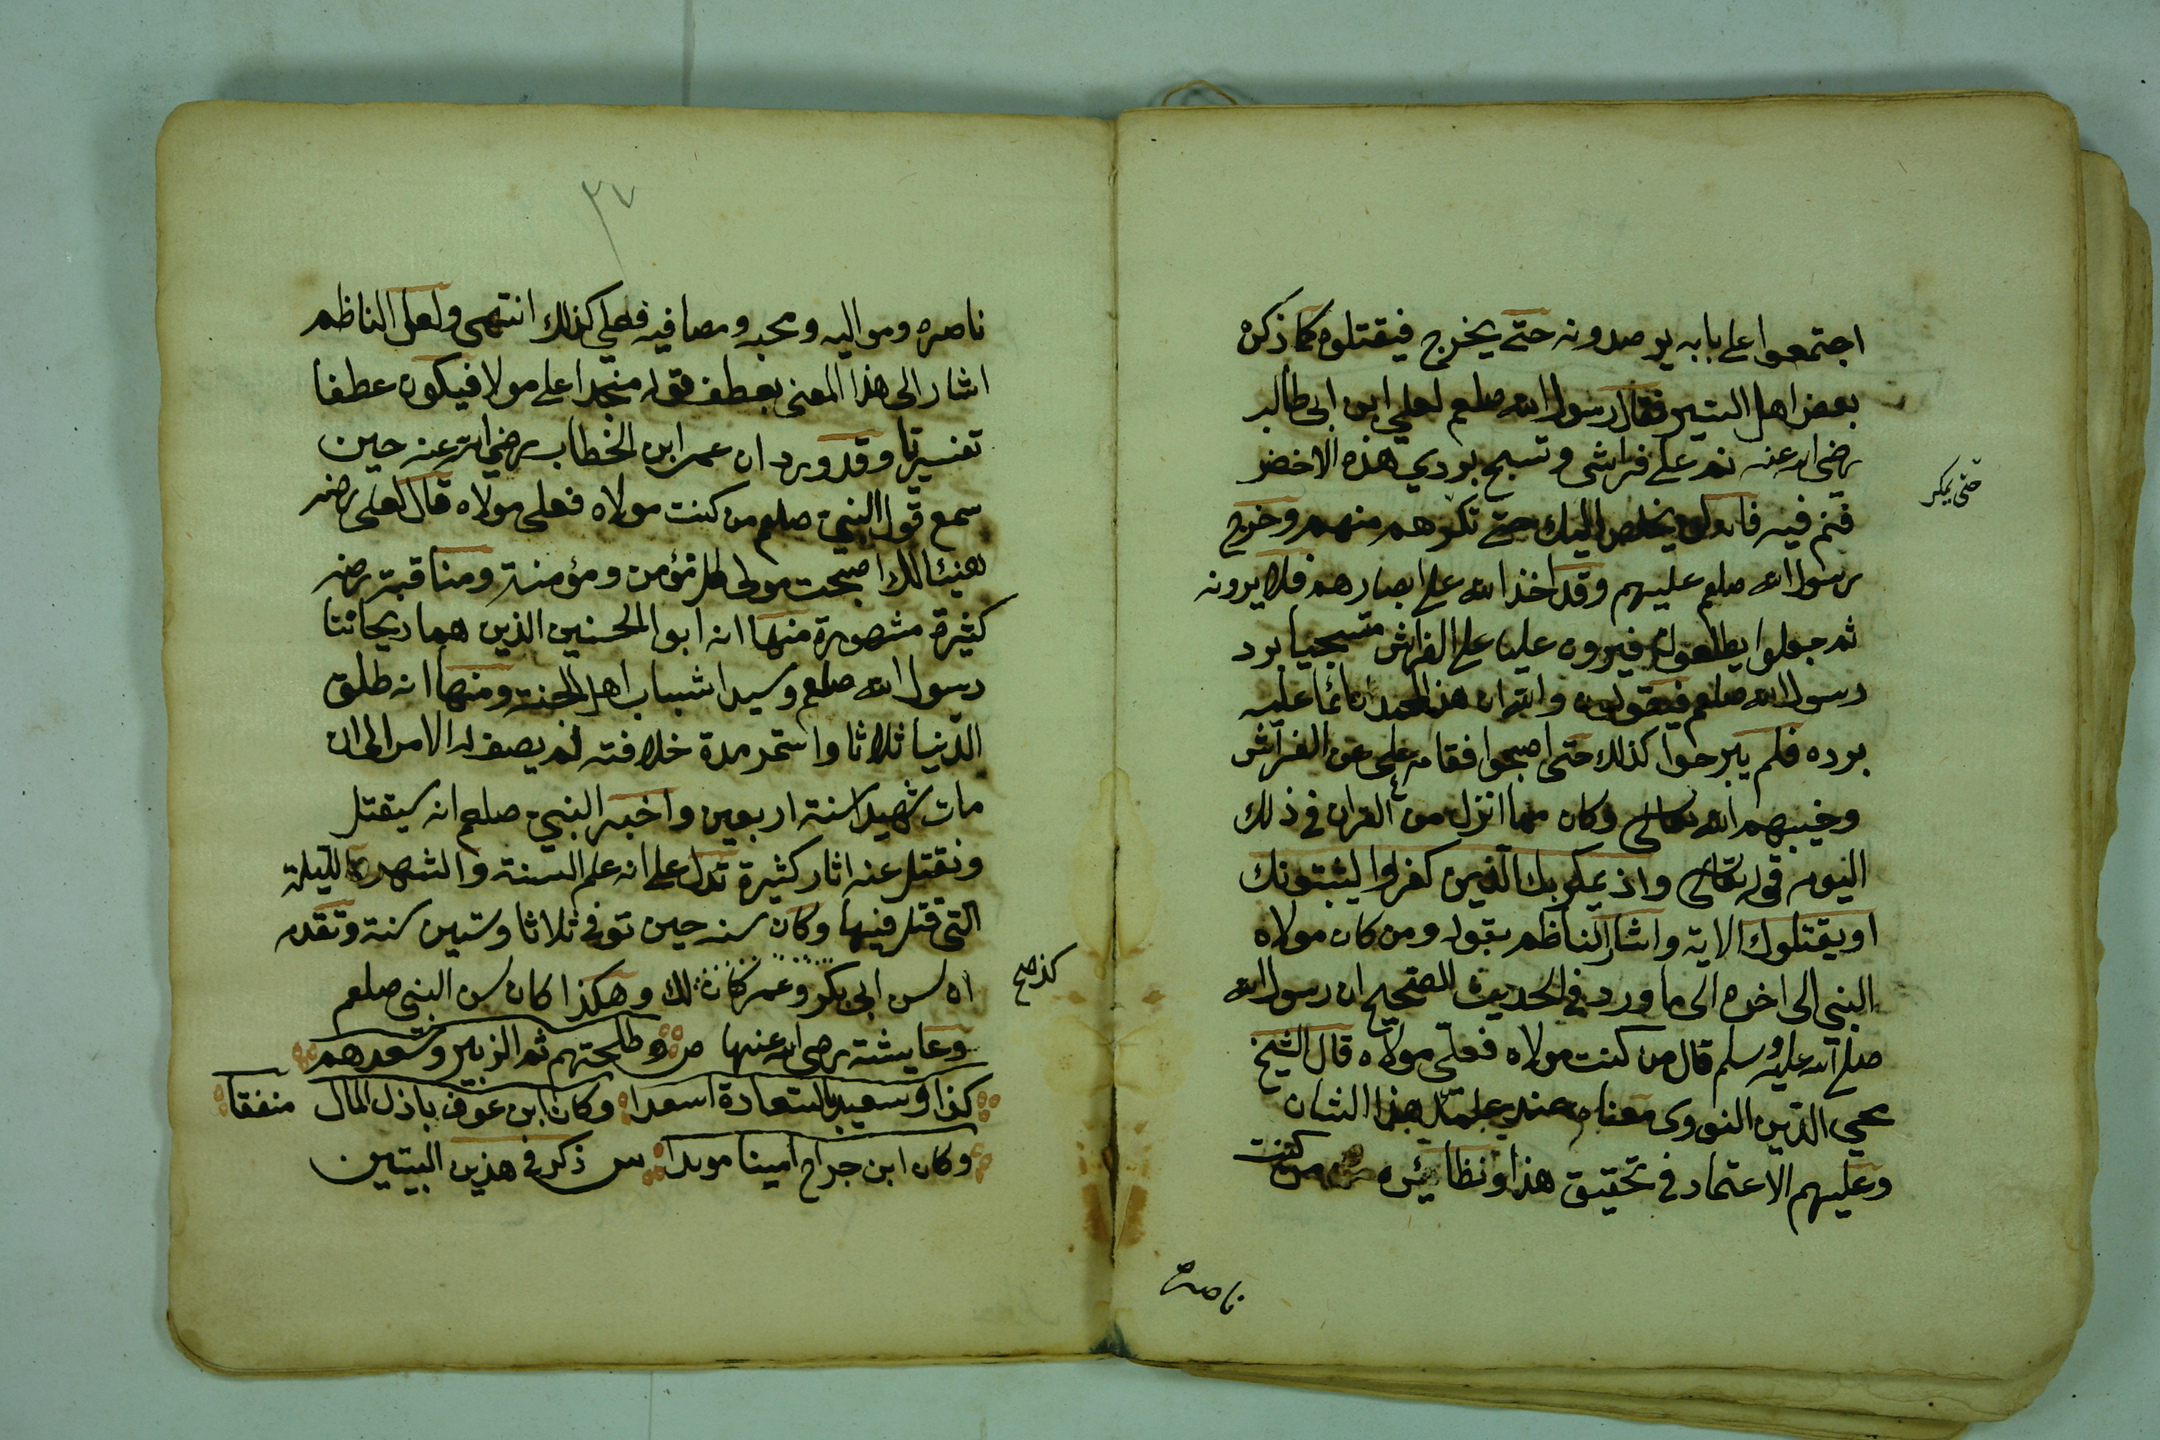 اجتمعوا على بابه يرصدونه حتى يخرج فيقتلوه كما ذكره
بعض اهل السير فقال رسول الله صلعم لعلي ابن ابي طالب
رضي الله عنه نم على فراشي وتسبح بردي هذه الاخضر
فنم فيه فانه لن يخلص اليك حتى تكرهم منهم وخرج
رسول الله صلعم عليهم وقد اخذ الله على ابصارهم فلا يرونه
ثم جعلوا يطلعون فيرون عليا على الفراش متسجيا برد
رسول الله صلعم فيقولون والله ان هذا لمحمد نائما عليه
برده فلم يبرحوا كذلك حتى اصبحوا فقام على عن الفراش
وخيبهم الله تعالى وكان مما انزل من القران في ذلك
اليوم قوله تعالى واذ يمكر بك الذين كفروا ليثبتونك
او يقتلوك الاية واشار الناظم بقوله ومن كان مولاه
النبي الى اخره الى ما ورد في الحديث الصحيح ان رسول الله
صلى الله عليه وسلم قال من كنت مولاه فعلي مولاه قال الشيخ
محي الدين النووي معناه عند علماء هذا الشان
وعليهم الاعتماد في تحقيق هذا ونظائره من كنت
ناصره
حتى يمكر
٣٧
ناصره ومواليه ومحبه ومصافيه فعلي كذلك انتهى ولعل الناظم
اشار الى هذا المعنى بعطف قوله منجدا على مولا فيكون عطفا
تفسيريا وقد ورد ان عمر ابن الخطاب رضي الله عنه حين
سمع قول النبي صلعم من كنت مولاه فعلى مولاه قال لعلى رضه
هنيئا لك اصبحت مولى كل مؤمن ومؤمنة ومناقبه رضه
كثيرة مشهورة منها انه ابو الحسنين الذين هما ريحانتا
رسول الله صلعم وسيدا شباب اهل الجنة ومنها انه طلق
الدنيا ثلاثا واستمر مدة خلافته لم يصف له الامر الى ان
مات شهيدا سنة اربعين واخبره النبي صلعم انه سيقتل
ونقتل عنه اثار كثيرة تدل على انه علم السنة والشهر والليلة
التي قتل فيها وكان سنه حين توفي ثلاثا وستين سنة وتقدم
ان سن ابي بكر وعمر كان ذلك وهكذا كان سن النبي صلعم
كذا صح
وعايشة رضي الله عنها ص وطلحتهم ثم الزبير وسعدهم
كذا وسعيد بالسعادة اسعدا وكان ابن عوف باذل المال منفقا
وكان ابن جراح امينا مويدا س ذكر في هذين البيتين